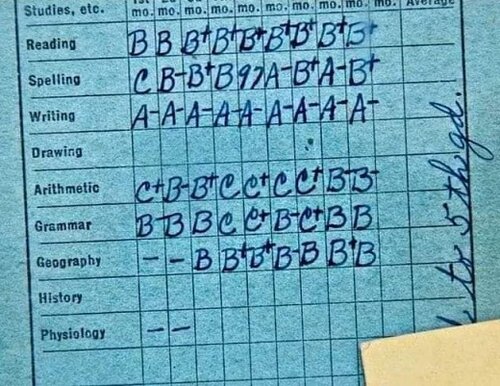 Studies, etc. 1st mo. mo. mo. mo. mo. mo. mo. mo. mo. mo. Average
Reading B B B+ B+ B+ B+ B+ B+ B+
Spelling C B- B+ B 97 A- B+ A- B+
Writing A- A- A- A- A- A- A- A- A-
Drawing
Arithmetic C+ B- B+ C C+ C C+ B- B-
Grammar B- B B C C+ B- C+ B B
Geography — — B B+ B+ B- B B+ B
History
Physiology — —
to 5th gd.